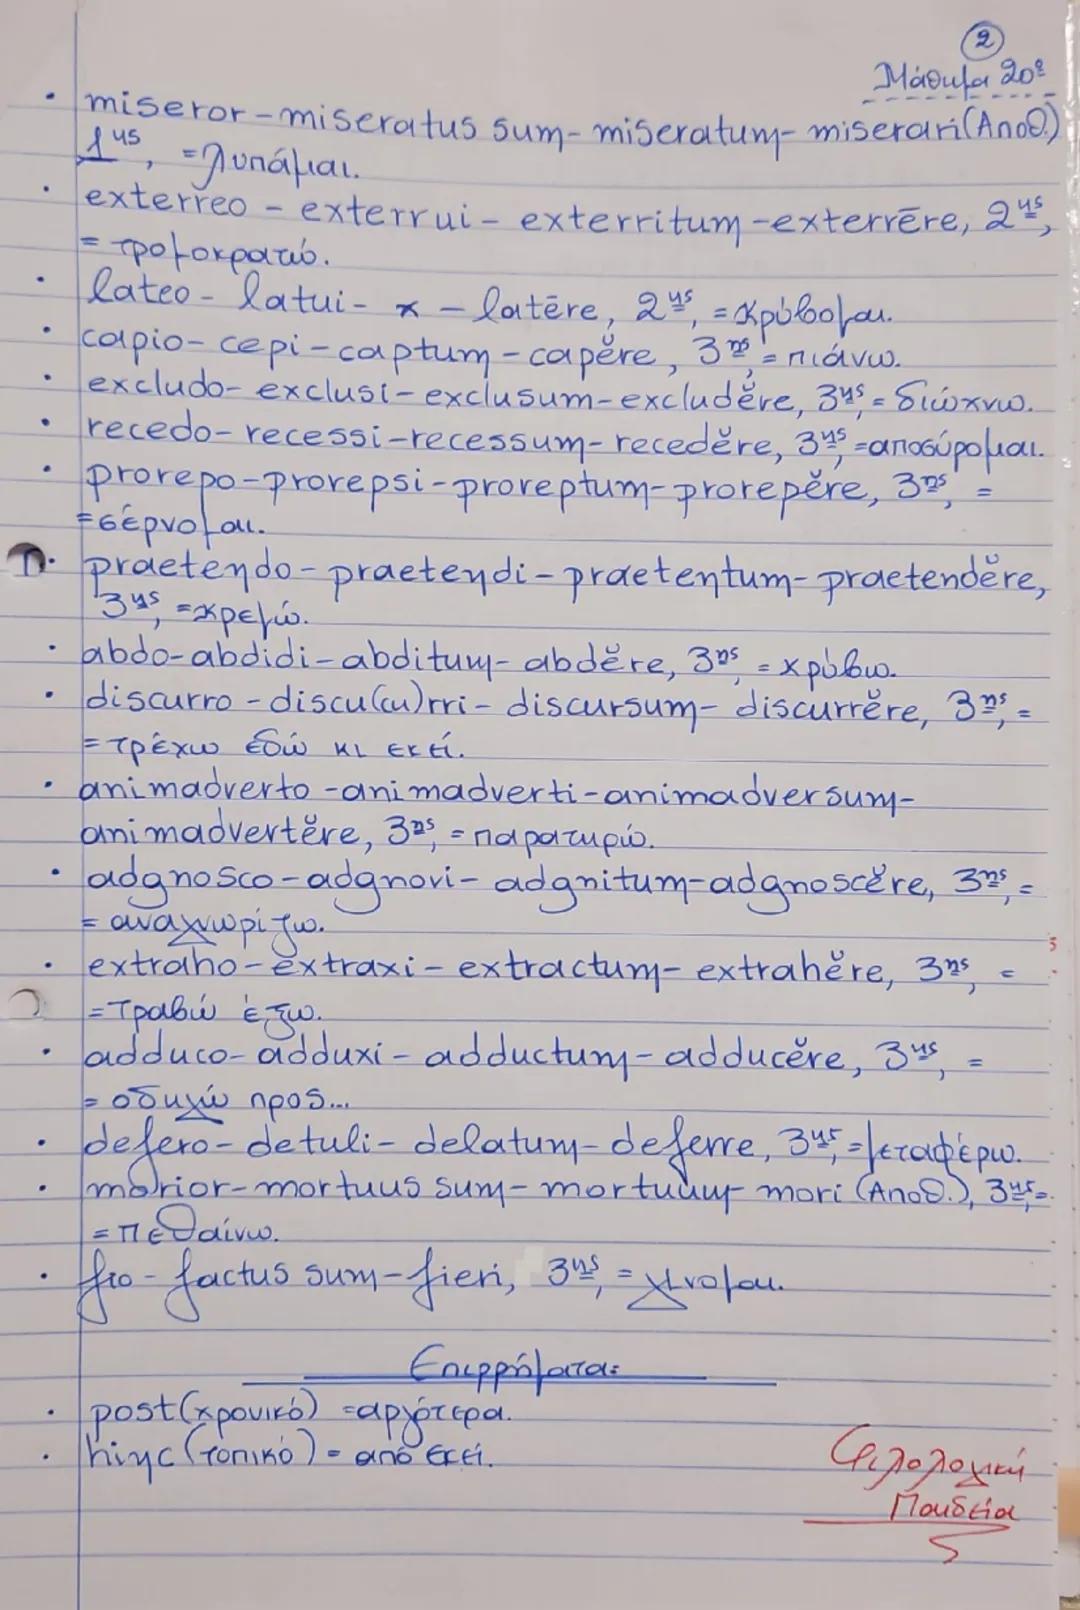 2
Μάθημα 20ο
• miseror - miseratus sum - miseratum - miserari (Αποθ.)
1ης, = λυπάμαι.
• exterreo - exterrui - exterritum - exterrēre, 2ης,
= τρομοκρατώ.
• lateo - latui - x - latēre, 2ης, = κρύβομαι.
• capio - cepi - captum - capĕre, 3ης, = πιάνω.
• excludo - exclusi - exclusum - excludĕre, 3ης, = διώχνω.
• recedo - recessi - recessum - recedĕre, 3ης, = αποσύρομαι.
• prorepo - prorepsi - proreptum - prorepĕre, 3ης, =
= σέρνομαι.
• praetendo - praetendi - praetentum - praetendĕre,
3ης, = κρεμώ.
• abdo - abdidi - abditum - abdĕre, 3ης, = κρύβω.
• discurro - discu(cu)rri - discursum - discurrĕre, 3ης, =
= τρέχω εδώ κι εκεί.
• animadverto - animadverti - animadversum -
animadvertĕre, 3ης, = παρατηρώ.
• adgnosco - adgnovi - adgnitum - adgnoscĕre, 3ης, =
= αναγνωρίζω.
• extraho - extraxi - extractum - extrahĕre, 3ης, =
= τραβώ έξω.
• adduco - adduxi - adductum - adducĕre, 3ης, =
= οδηγώ προς...
• defero - detuli - delatum - deferre, 3ης, = μεταφέρω.
• morior - mortuus sum - mortuum - mori (Αποθ.), 3ης, =
= πεθαίνω.
• fio - factus sum - fieri, 3ης, = γίνομαι.
Επιρρήματα:
• post (χρονικό) = αργότερα.
• hinc (τοπικό) = από εκεί.
Φιλολογική
Παιδεία